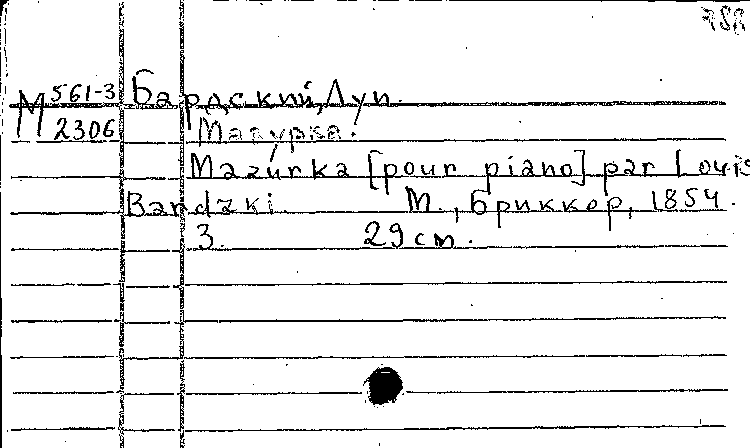 788
М 561-3 Бардский, Луи.
2306 Мазурка.
Mazurka [pour piano] par Louis
Bandzki. М., Бриккер, 1854.
3. 29 cm.